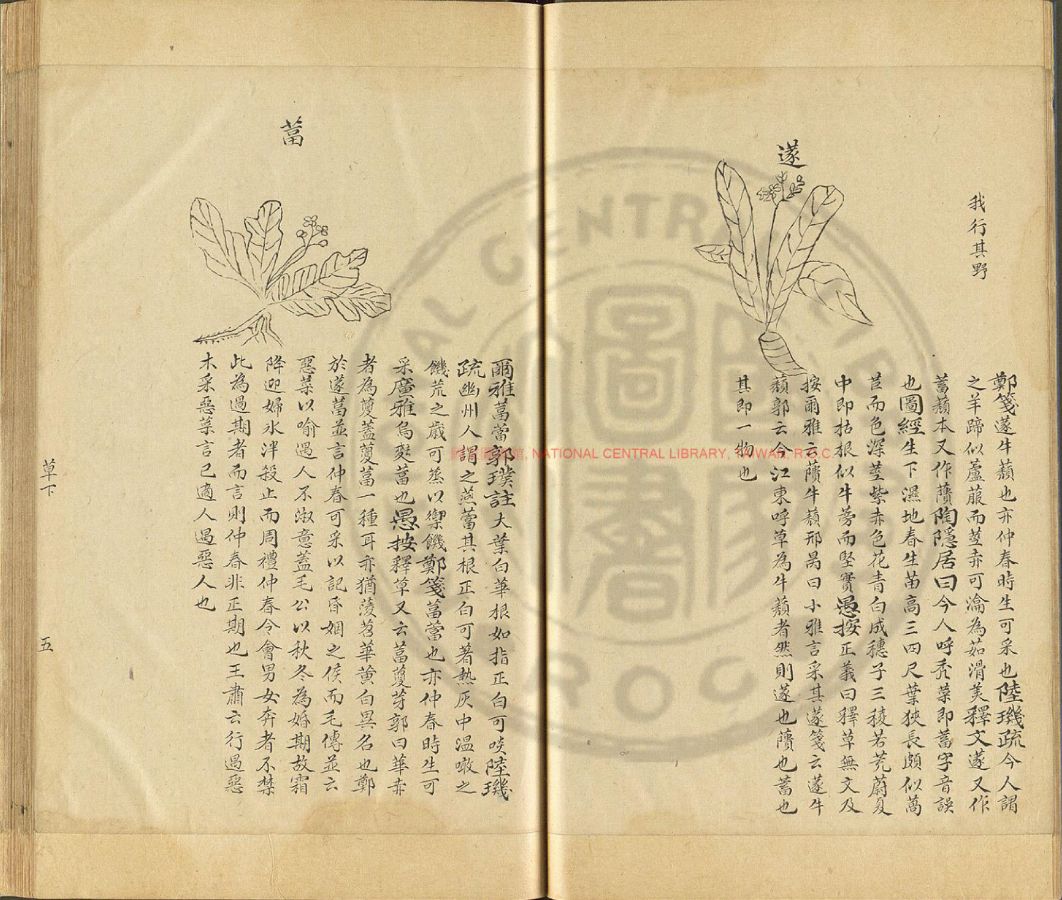 我行其野
蓫
鄭箋蓫牛蘈也亦仲春時生可采也陸璣疏今人謂
之羊蹄似蘆菔而莖赤可瀹為茹滑美釋文蓫又作
蓄蘈本又作藬陶隱居曰今人呼禿菜即蓄字音誤
也圖經生下濕地春生苗高三四尺葉狹長頗似萵
苣而色深莖紫赤色花青白成穗子三稜若茺蔚夏
中即枯根似牛蒡而堅實愚按正義曰釋草無文及
按爾雅云藬牛蘈邢昺曰小雅言采其蓫箋云蓫牛
蘈郭云今江東呼草為牛蘈者然則蓫也藬也蓄也
其即一物也
葍
爾雅葍䔰郭璞註大葉白華根如指正白可啖陸璣
疏幽州人謂之燕䔰其根正白可著熱灰中溫噉之
饑荒之歲可蒸以禦饑鄭箋葍䔰也亦仲春時生可
采廣雅烏䕀葍也愚按釋草又云葍藑芽郭曰華赤
者為藑蓋藑葍一種耳亦猶蔆苕華黃白異名也鄭
於蓫葍並言仲春可采以記昏姻之候而毛傳並云
惡菜以喻遇人不淑意蓋毛公以秋冬為婚期故霜
降迎婦冰泮殺止而周禮仲春令會男女奔者不禁
此為過期者而言則仲春非正期也王肅云行遇惡
木采惡菜言己適人遇惡人也
草下
五
NATIONAL CENTRAL LIBRARY, TAIWAN, R.O.C.